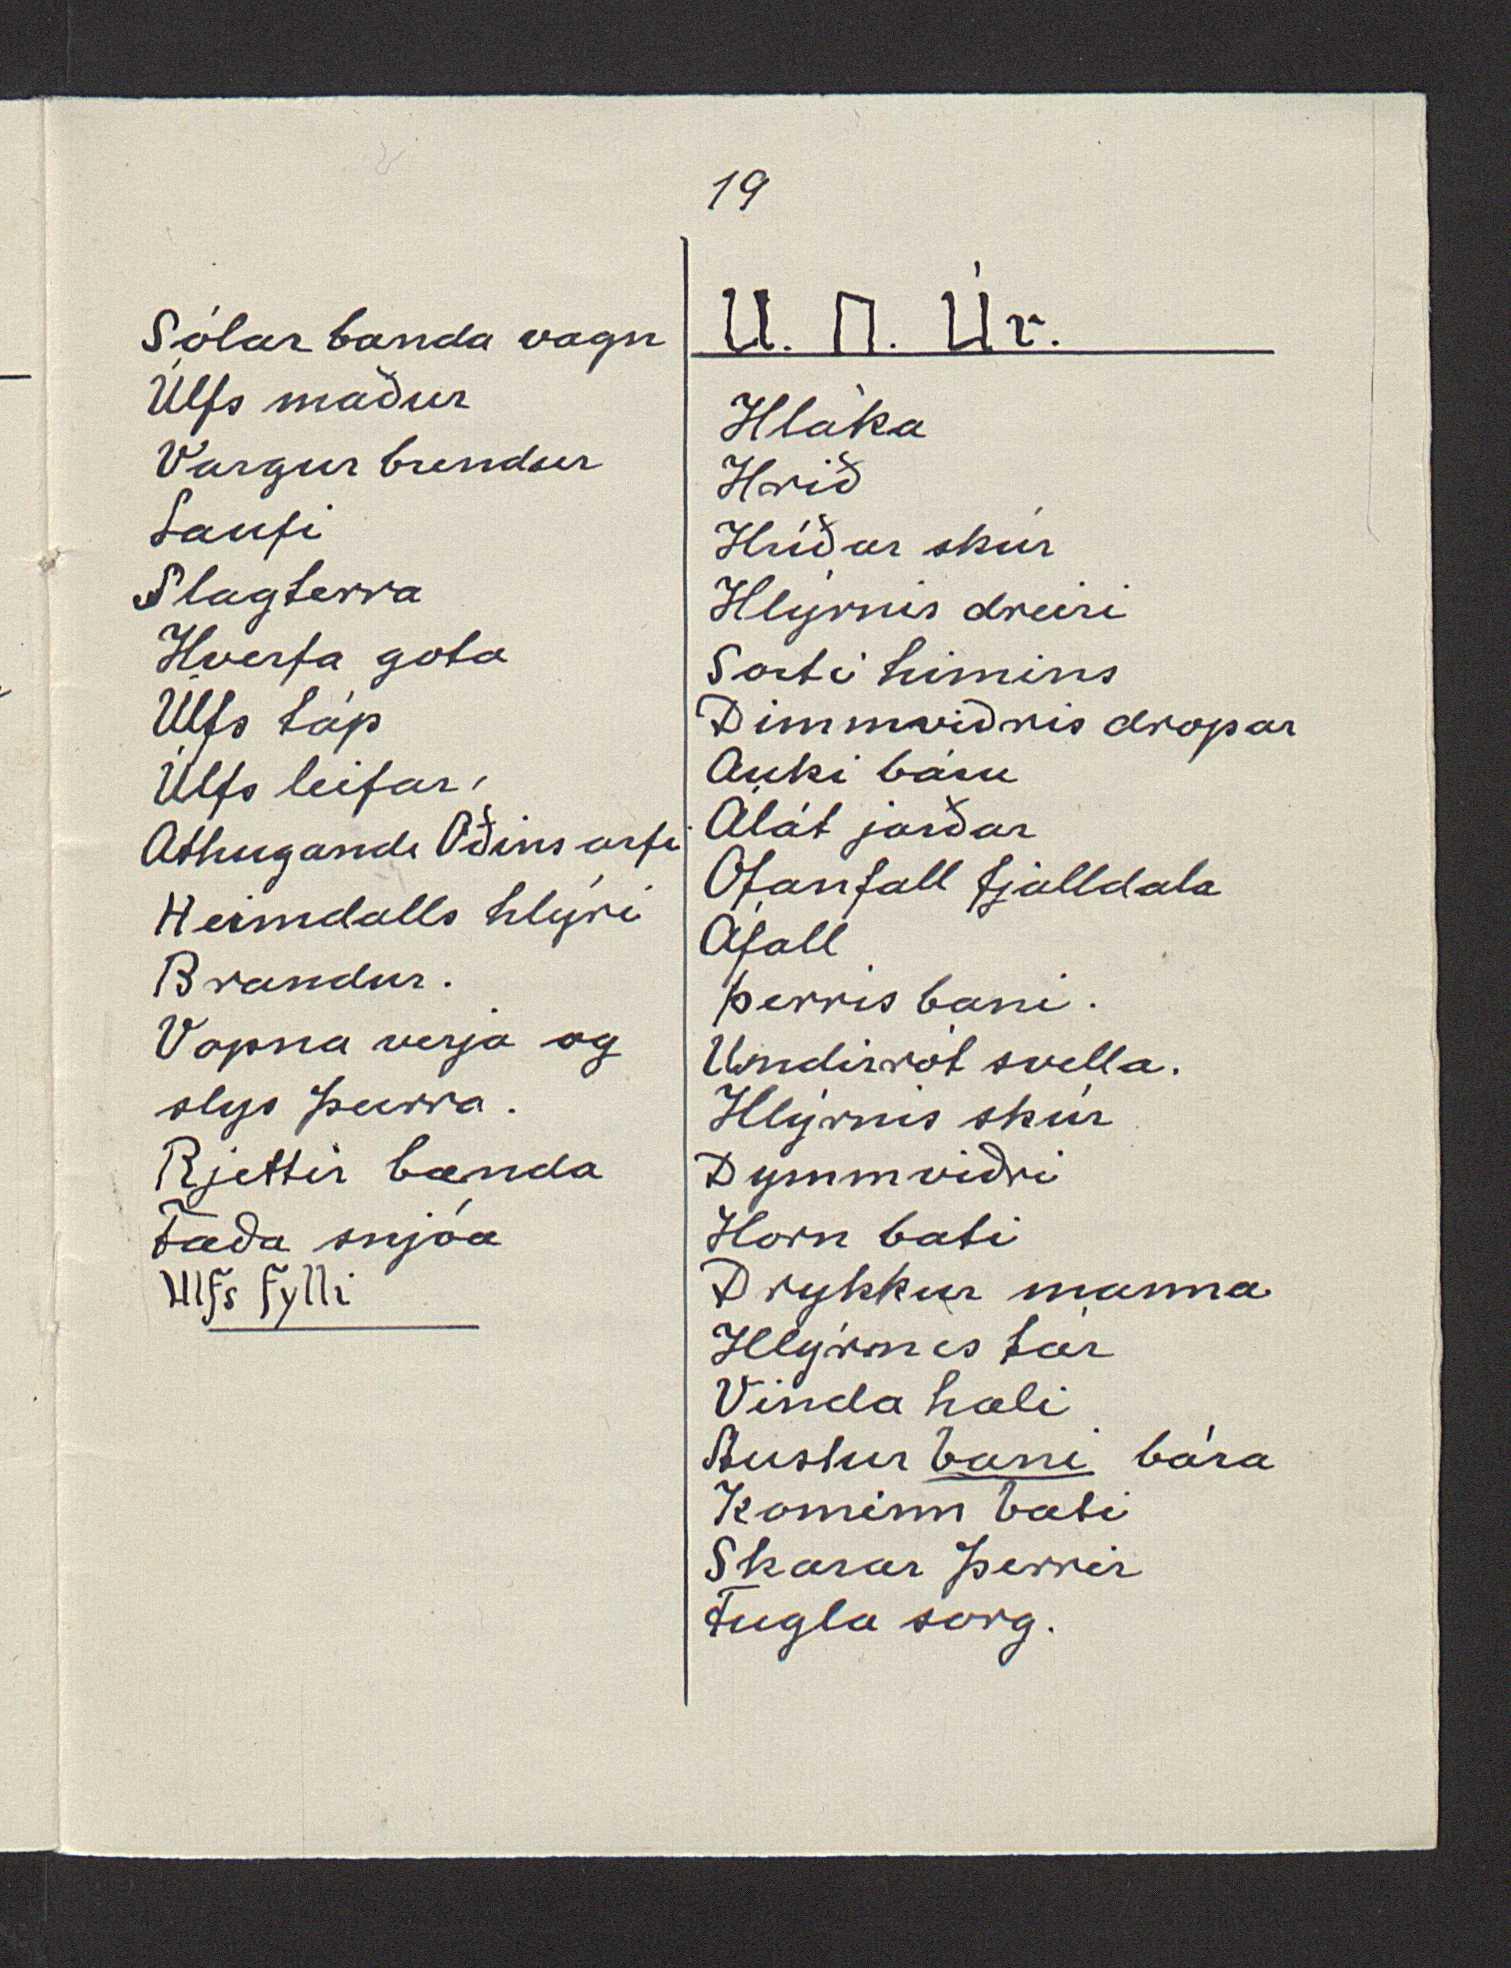 19
Sólar banda vagn
Úlfs maður
Vargur brendur
Laufi
Slagterra
Hverfa gota
Úlfs táp
Úlfs leifar,
Athugande Oðins arfi
Heimdalls hlýri
Brandur.
Vopna verja og
slys þurra.
Rjettir bænda
Fæða snjóa
Ulfs fylli
U. Π. Úr.
Hláka
Hrið
Hríðar skúr
Hlýrnis dreiri
Sorti himins
Dimmviðris dropar
Auki báru
Álát jarðar
Ofanfall fjalldala
Áfall
Þerris bani.
Undirrót svella.
Hlýrnis skúr
Dymmviðri
Horn bati
Drykkur manna
Hlýrnis tár
Vinda hali
Austur bani bára
Kominn bati
Skarar þerrir
Fugla sorg.